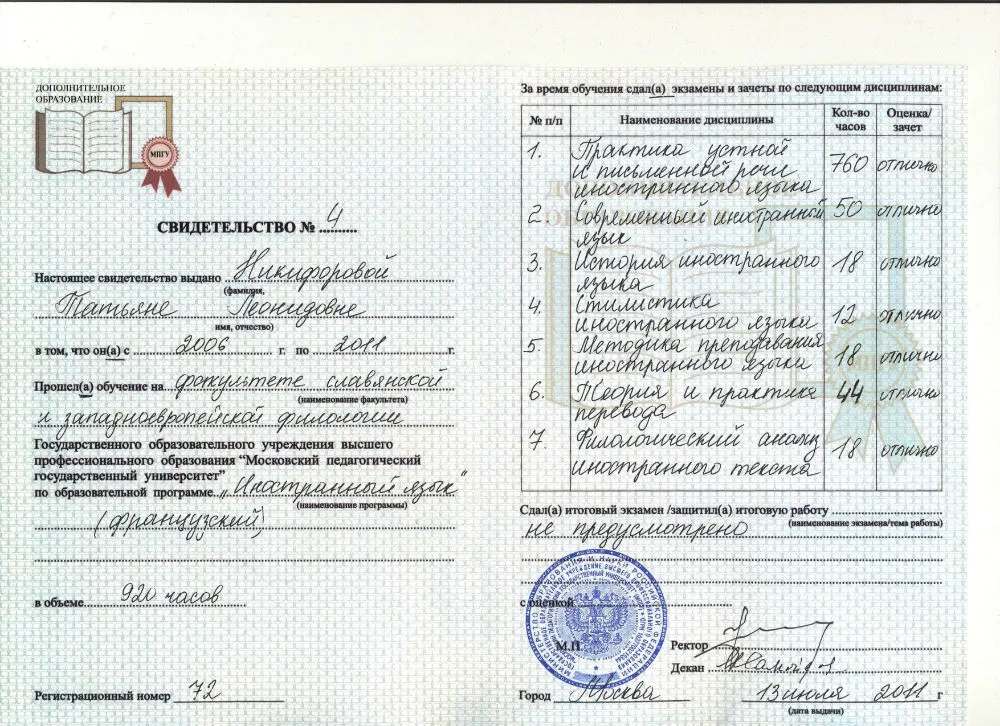 ДОПОЛНИТЕЛЬНОЕ
ОБРАЗОВАНИЕ
МПГУ
СВИДЕТЕЛЬСТВО № 4
Настоящее свидетельство выдано Никифоровой
(фамилия,
Татьяне Леонидовне
имя, отчество)
в том, что он(а) с 2006 г. по 2011 г.
Прошел(а) обучение на факультете славянской
(наименование факультета)
и западноевропейской филологии
Государственного образовательного учреждения высшего
профессионального образования “Московский педагогический
государственный университет”
по образовательной программе „Иностранный язык”
(наименование программы)
(французский)
в объеме 920 часов
Регистрационный номер 72
За время обучения сдал(а) экзамены и зачеты по следующим дисциплинам:
№ п/п Наименование дисциплины Кол-во часов Оценка/ зачет
1. Практика устной
и письменной речи 760 отлично
иностранного языка
2. Современный иностранный 50 отлично
язык
3. История иностранного 18 отлично
языка
4. Стилистика
иностранного языка 12 отлично
5. Методика преподавания
иностранного языка 18 отлично
6. Теория и практика 44 отлично
перевода
7 Филологический анализ
иностранного текста 18 отлично
Сдал(а) итоговый экзамен /защитил(а) итоговую работу
(наименование экзамена/тема работы)
не предусмотрено
с оценкой
М.П.
Ректор
Декан
Город Москва 13 июля 2011 г
(дата выдачи)